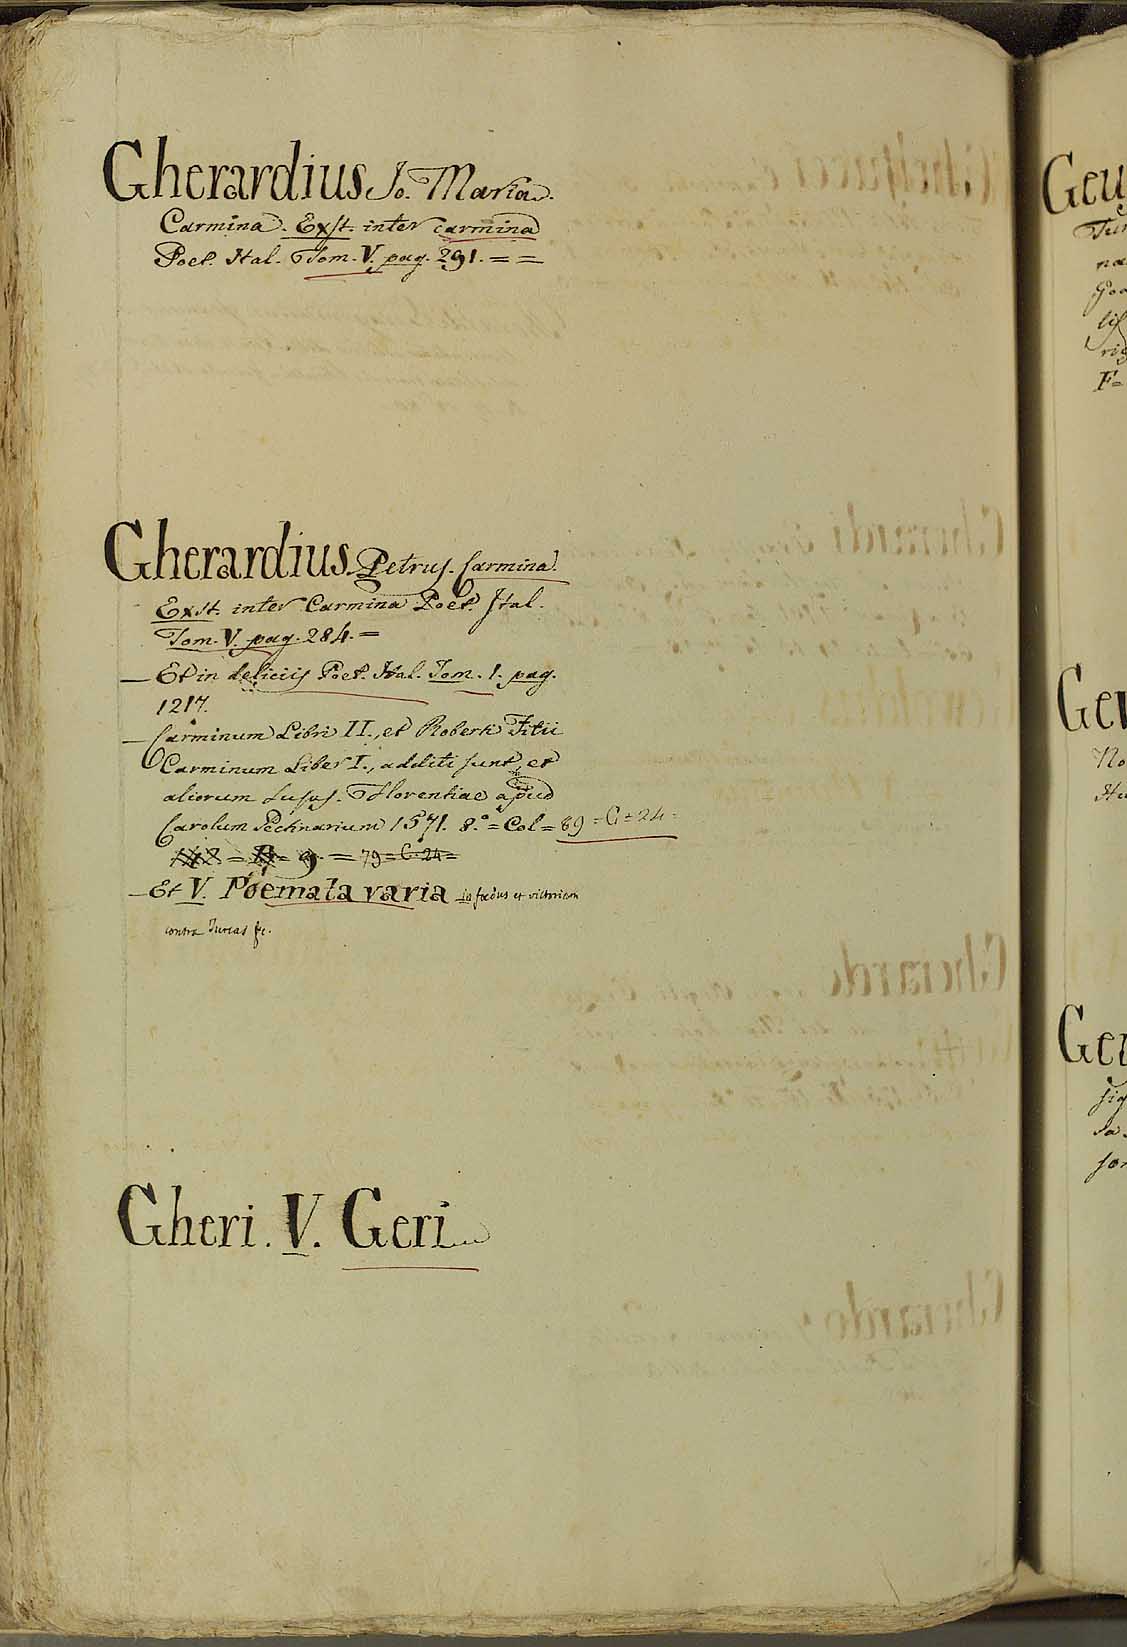 Gherardius Jo. Maria.
Carmina. Exst. inter carmina
Poet. Ital. Tom. V. pag. 291. = =
Gherardius Petrus. Carmina.
Exst. inter Carmina Poet. Ital.
Tom. V. pag. 284. =
— Et in deliciis Poet. Ital. Tom. 1. pag.
1217.
— Carminum Libri II., et Roberti Titii
Carminum Liber I., additi sunt, et
aliorum Lusus. Florentiae apud
Carolum Pectinarium 1571. 8.° = Col = 89 = C = 24 =
= 79 = C. 24 =
— Et V. Poemata varia in foedus et victoriam
contra Turcas &c.
Gheri. V. Geri
Geu
Ger
No
Ger